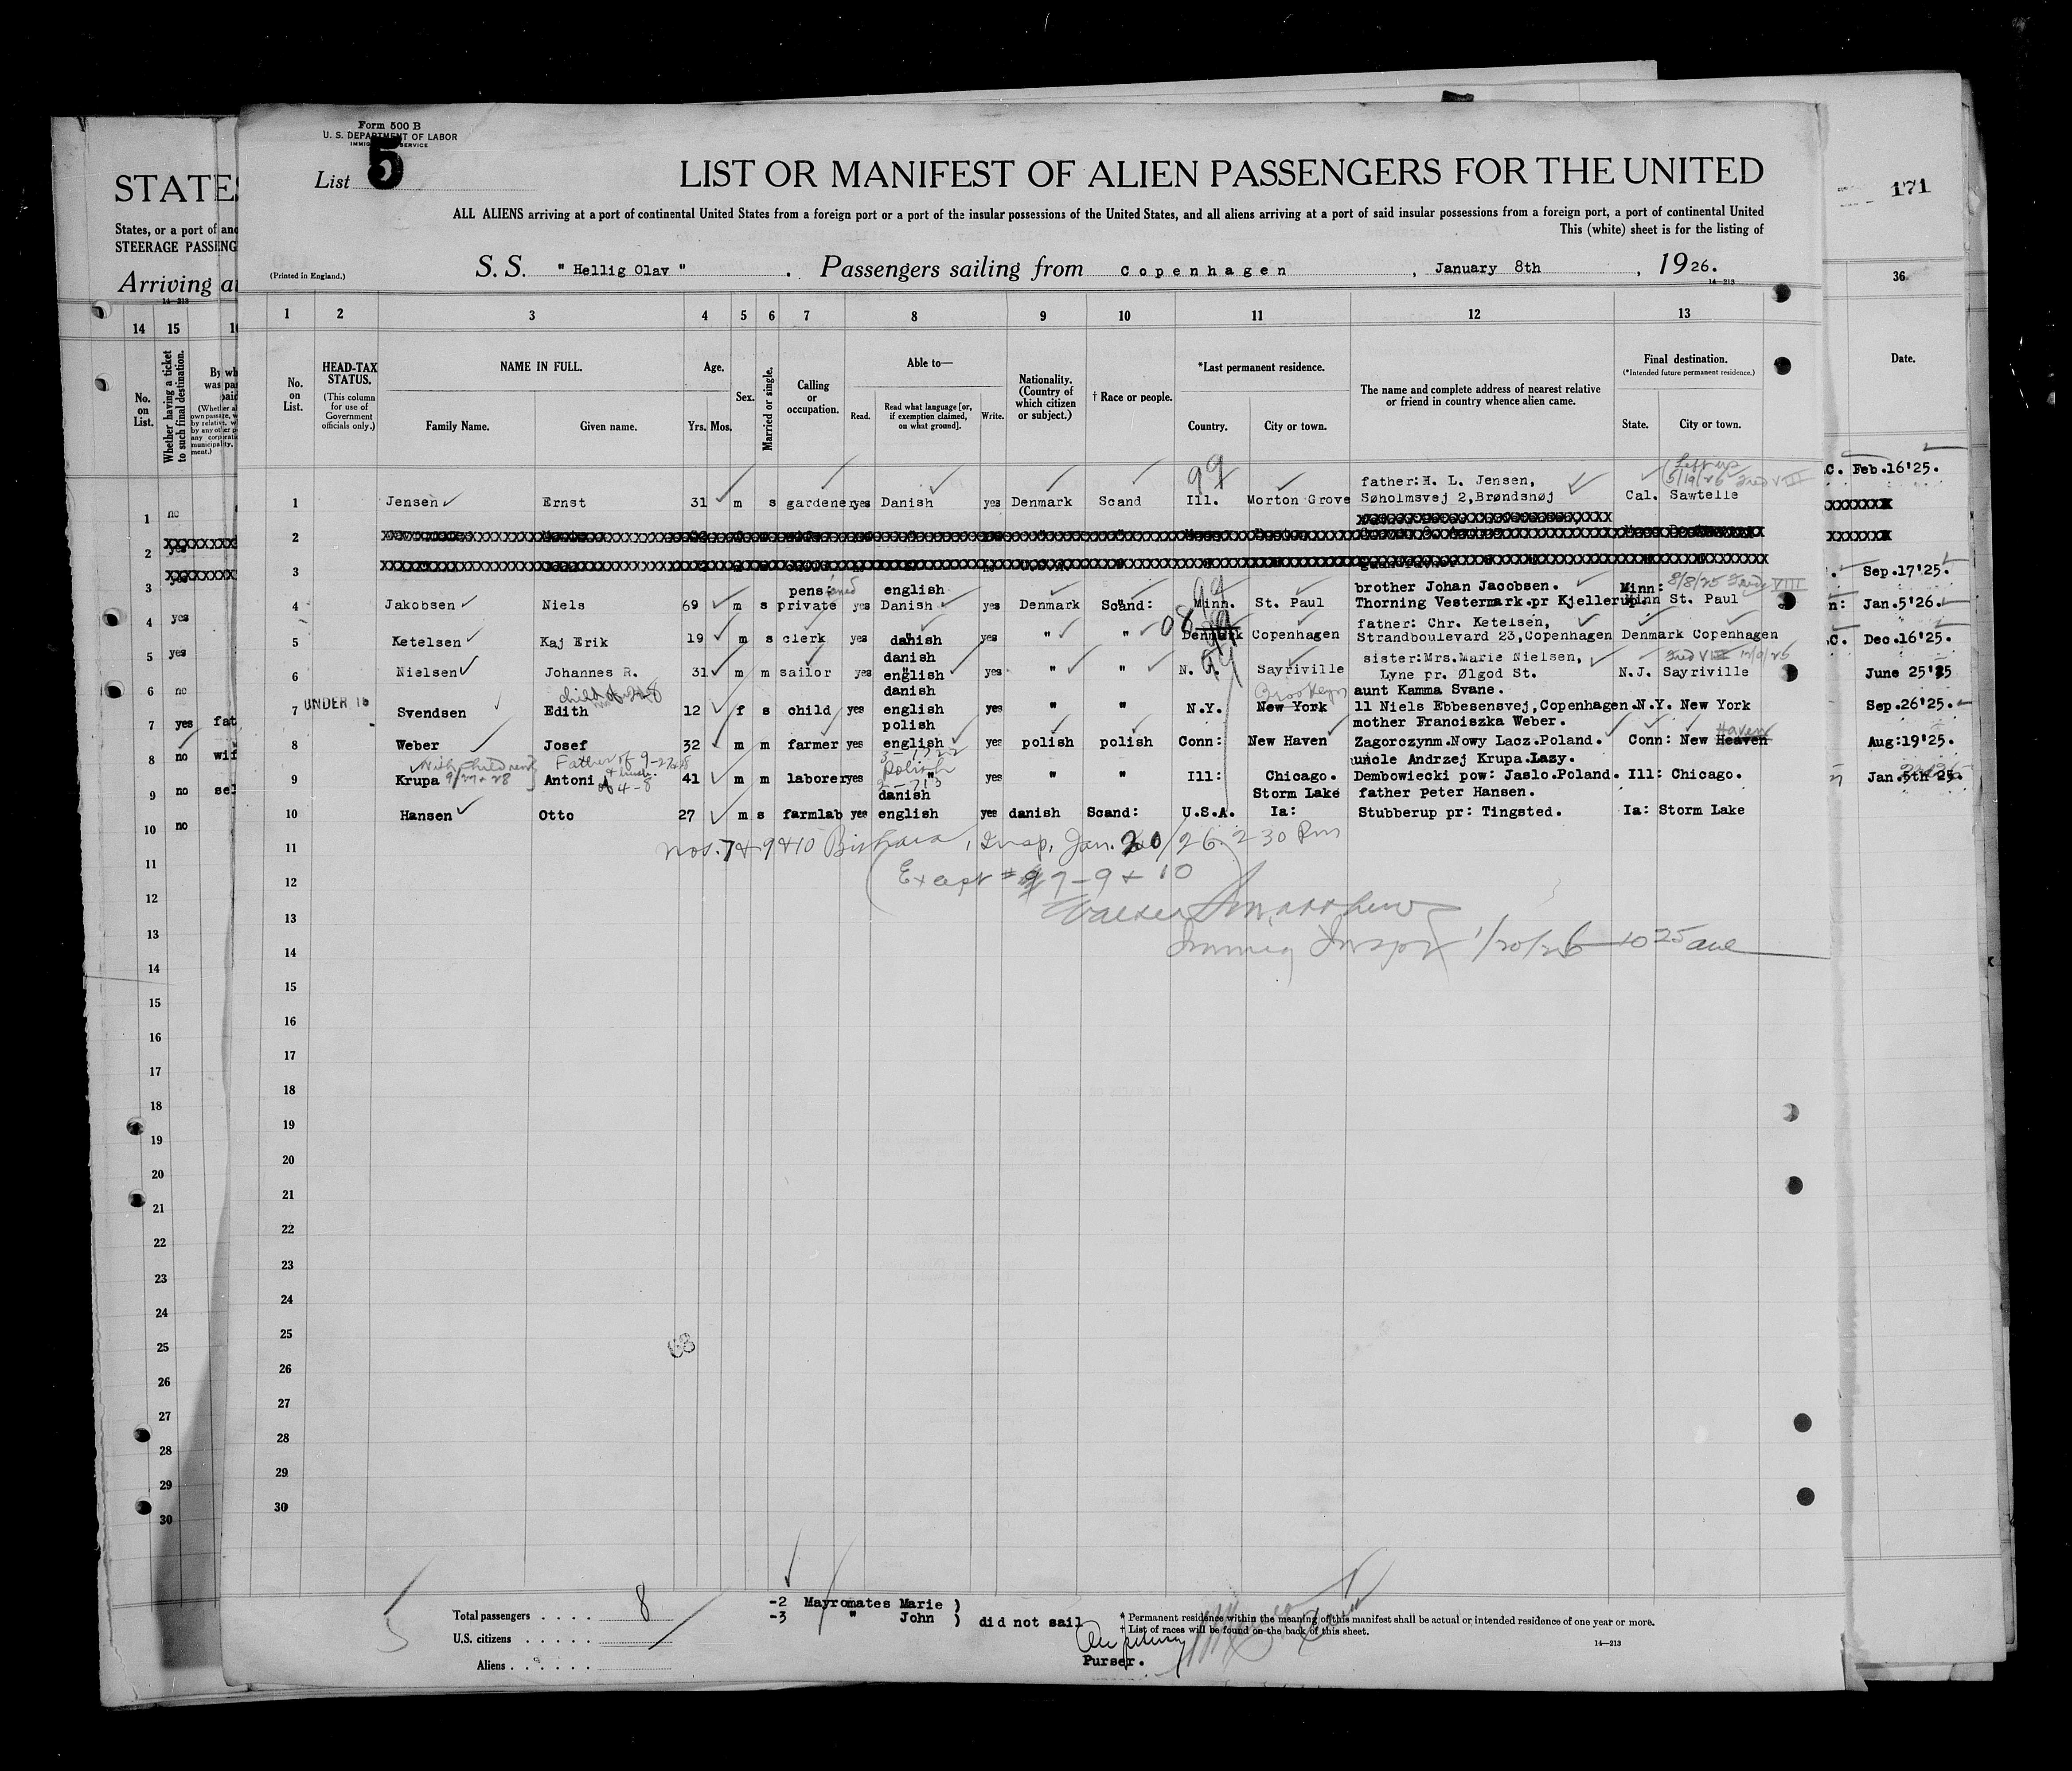 Form 500 B
U. S. DEPARTMENT OF LABOR
List 5
LIST OR MANIFEST OF ALIEN PASSENGERS FOR THE UNITED
ALL ALIENS arriving at a port of continental United States from a foreign port or a port of the insular possessions of the United States, and all aliens arriving at a port of said insular possessions from a foreign port, a port of continental United
This (white) sheet is for the listing of
(Printed in England.)
S. S. "Hellig Olav". Passengers sailing from Copenhagen, January 8th, 1926.
14—213
1 2 3 4 5 6 7 8 9 10 11 12 13
No. on List.
HEAD-TAX STATUS.
(This column for use of Government officials only.)
NAME IN FULL.
Family Name. Given name.
Age.
Yrs. Mos.
Sex.
Married or single.
Calling or occupation.
Able to—
Read. Read what language [or, if exemption claimed, on what ground]. Write.
Nationality. (Country of which citizen or subject.)
† Race or people.
*Last permanent residence.
Country. City or town.
The name and complete address of nearest relative or friend in country whence alien came.
Final destination.
(*Intended future permanent residence.)
State. City or town.
99
father: H. L. Jensen,
1 Jensen Ernst 31 m s gardener yes Danish yes Denmark Scand Ill. Morton Grove Søholmsvej 2, Brøndshøj Cal. Sawtelle
2
3
pensioned english brother Johan Jacobsen. Minn:
4 Jakobsen Niels 69 m s private yes Danish yes Denmark Scand: Minn. St. Paul Thorning Vestermark.pr Kjellerup. Minn St. Paul
father: Chr. Ketelsen,
5 Ketelsen Kaj Erik 19 m s clerk yes danish yes " " Denmark Copenhagen Strandboulevard 23, Copenhagen Denmark Copenhagen
danish sister: Mrs. Marie Nielsen,
6 Nielsen Johannes R. 31 m m sailor yes english yes " " N. J. Sayriville Lyne pr. Ølgod St. N.J. Sayriville
danish Brooklyn aunt Kamma Svane.
7 UNDER 16 Svendsen Edith 12 f s child yes english yes " " N.Y. New York 11 Niels Ebbesensvej, Copenhagen. N.Y. New York
polish mother Franciszka Weber. Haven
8 Weber Josef 32 m m farmer yes english yes polish polish Conn: New Haven Zagorczynm.Nowy Lacz.Poland. Conn: New Heaven
With children 9/27 + 28 Father of 9-27+28
polish uncle Andrzej Krupa.Lazy.
9 Krupa Antoni 41 m m laborer yes " yes " " Ill: Chicago. Dembowiecki pow: Jaslo.Poland. Ill: Chicago.
danish Storm Lake father Peter Hansen.
10 Hansen Otto 27 m s farmlab yes english yes danish Scand: U.S.A. Ia: Stubberup pr: Tingsted. Ia: Storm Lake
11
12
(Except # 7-9 + 10)
13
14
Immig Inspr 1/20/26 10 25 am
15
16
17
18
19
20
21
22
23
24
25
26
27
28
29
30
Total passengers . . . . 8
U.S. citizens . . . . .
Aliens . . . . . .
-2 Mayromates Marie )
-3 " John ) did not sail
Purser.
* Permanent residence within the meaning of this manifest shall be actual or intended residence of one year or more.
† List of races will be found on the back of this sheet.
14—213
STATES
States, or a port of
STEERAGE PASSENG
Arriving
14—213
14 15
No. on List.
Whether having a ticket to such final destination.
1 no
2 yes
3 yes
4 yes
5 yes
6 no
7 yes
8 no
9 no
10 no
11
12
13
14
15
16
17
18
19
20
21
22
23
24
25
26
27
28
29
30
171
36
Date.
Feb.16'25.
Sep.17'25.
Jan.5'26.
Dec.16'25.
June 25'25
Sep.26'25.
Aug:19'25.
Jan.5th 25.